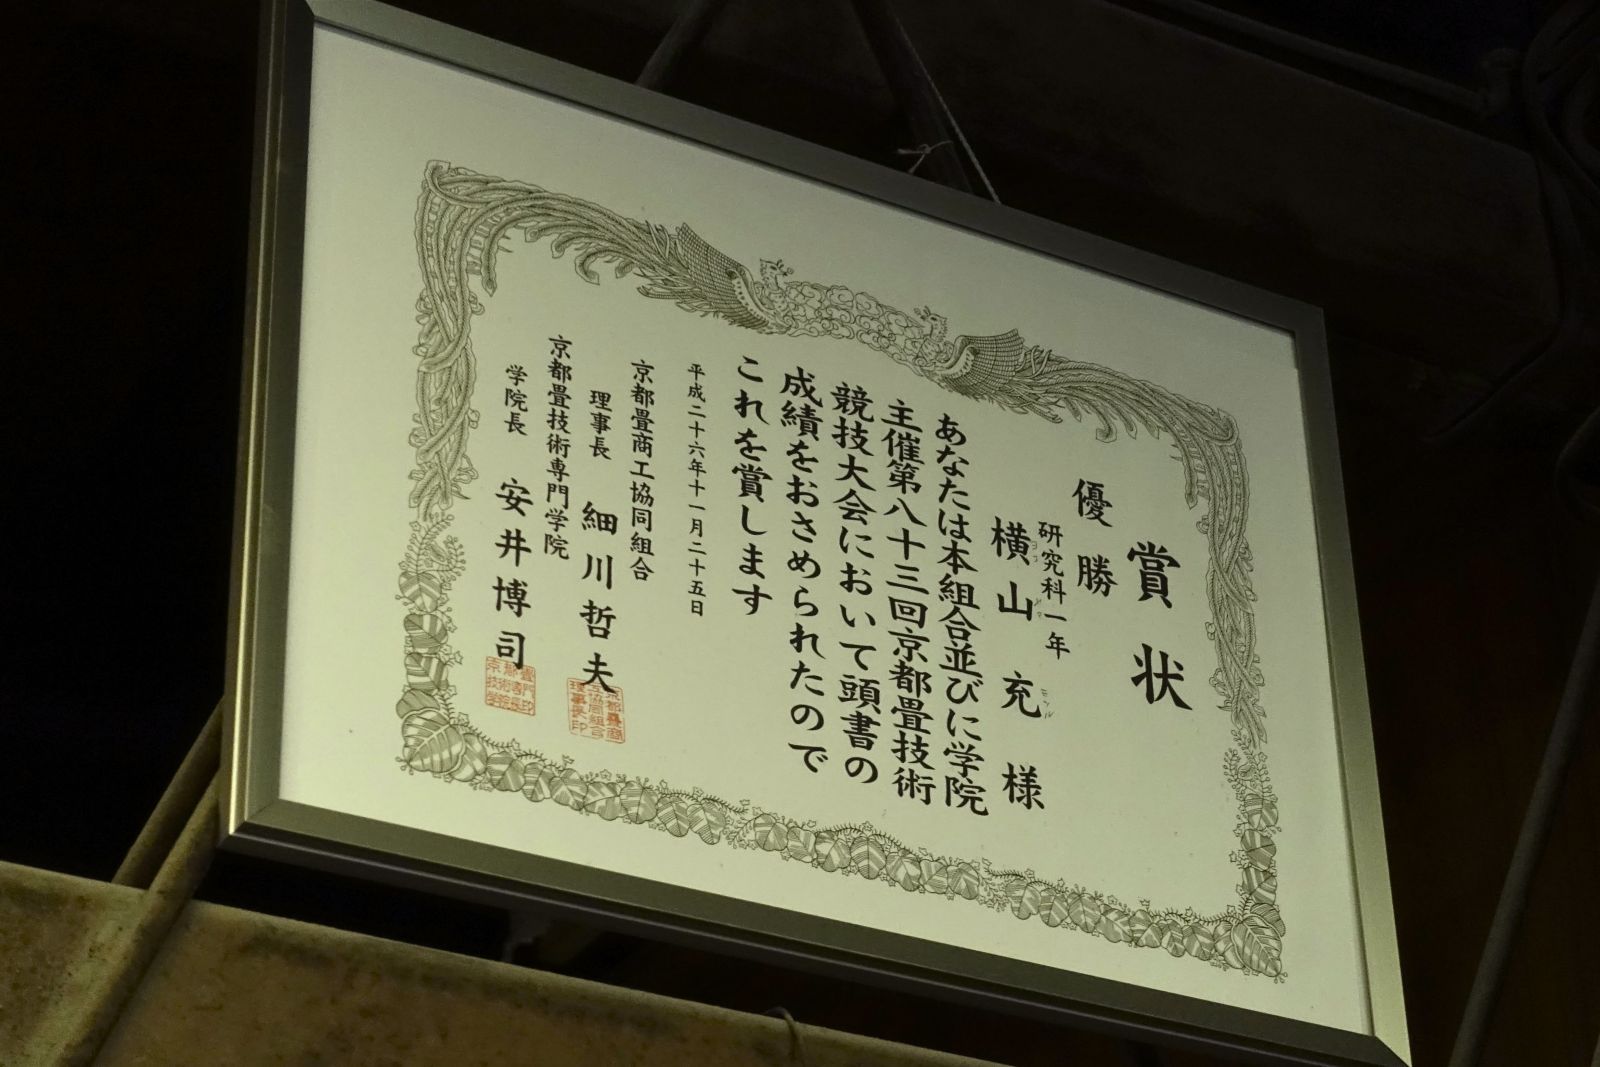 賞状
優勝
研究科一年
横山充様
ヨコヤマ ミツル
あなたは本組合並びに学院
主催第八十三回京都畳技術
競技大会において頭書の
成績をおさめられたので
これを賞します
平成二十六年十一月二十五日
京都畳商工協同組合
理事長 細川哲夫
京都畳商工協同組合理事長印
京都畳技術専門学院
学院長 安井博司